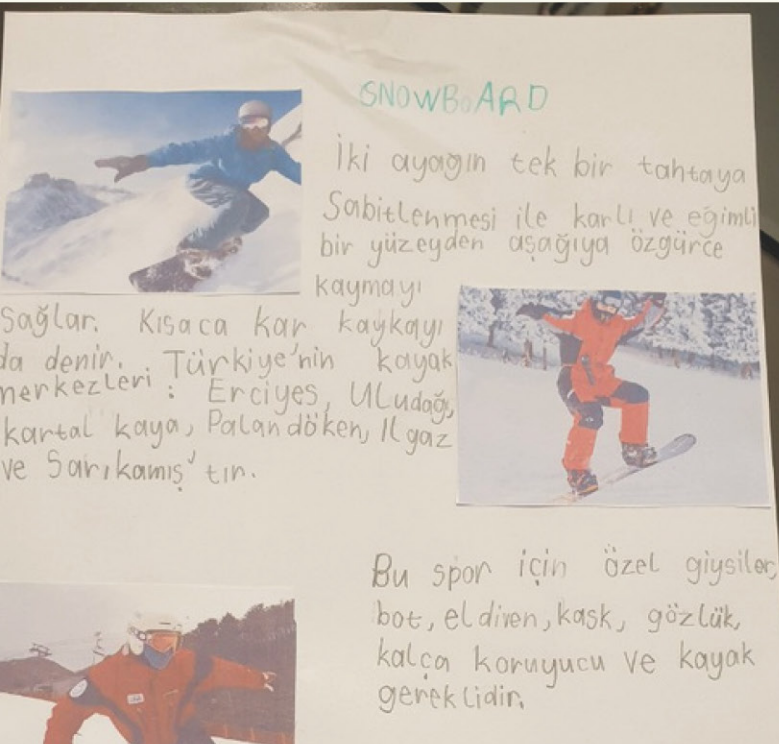 SNOWBOARD
İki ayağın tek bir tahtaya
Sabitlenmesi ile karlı ve eğimli
bir yüzeyden aşağıya özgürce
kaymayı
sağlar. Kısaca kar kaykayı
da denir. Türkiye'nin kayak
merkezleri : Erciyes, Uludağ,
kartal kaya, Palandöken, Ilgaz
ve Sarıkamış'tır.
Bu spor için özel giysiler,
bot, eldiven, kask, gözlük,
kalça koruyucu ve kayak
gereklidir.